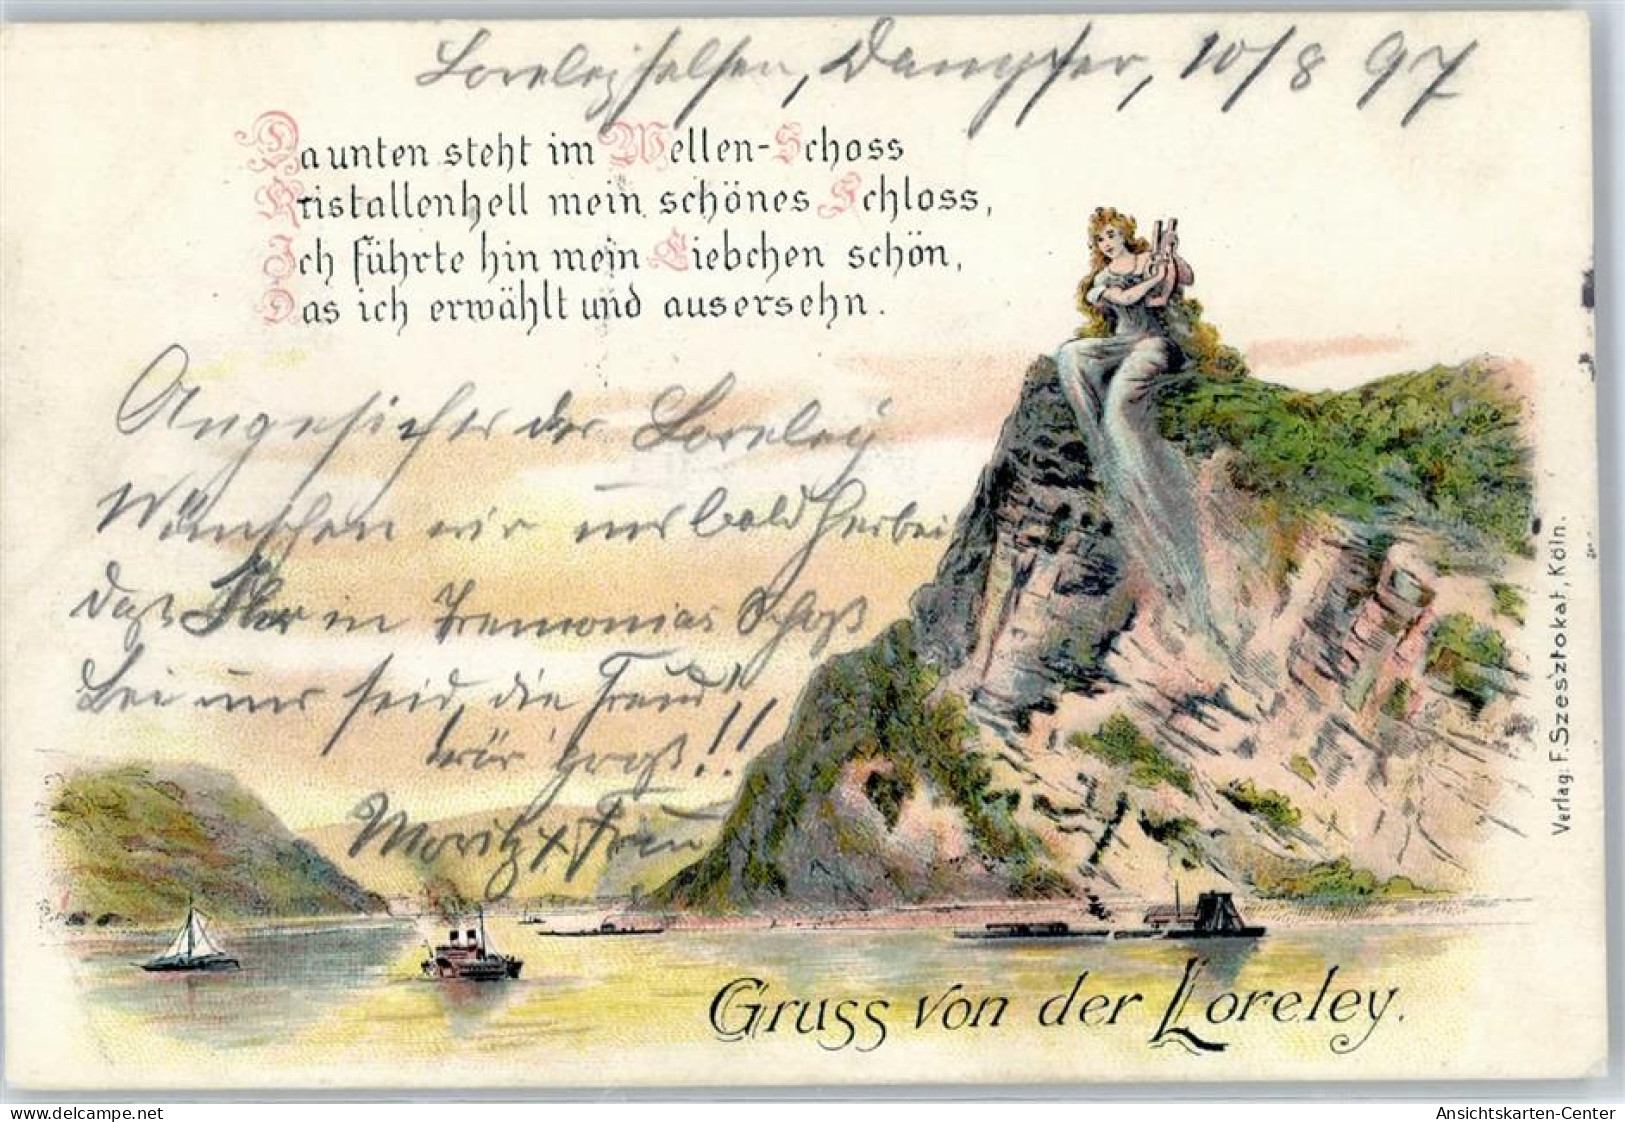 Loreleyfelsen, Dampfer, 10/8 97
Daunten steht im Wellen-Schoss
Kristallenhell mein schönes Schloss,
Ich führte hin mein Liebchen schön,
Das ich erwählt und ausersehn.
Angesichts der Loreley
Wünschen wir uns bald herbei
daß Ihr in Tremonias Schoß
bei uns seid, die Freud'
wär' groß!!
Moritz & Frau
Gruss von der Loreley.
Verlag: F. Szesztokat, Köln.
delcampe.net
Ansichtskarten-Center